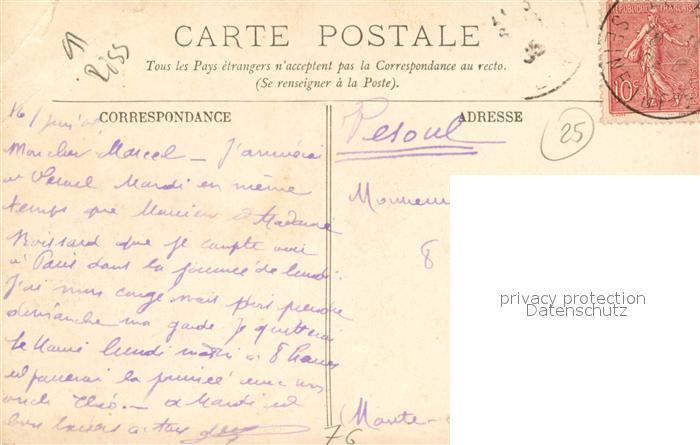 CARTE POSTALE
Tous les Pays étrangers n'acceptent pas la Correspondance au recto.
(Se renseigner à la Poste).
CORRESPONDANCE
ADRESSE
RÉPUBLIQUE FRANÇAISE
10
25
16/ juin
Mon cher Marcel _ J'arriverai
à Vesoul Mardi en même
temps que Monsieur et Madame
Boissard que je compte voir
à Paris dans la journée de lundi.
J'ai mon congé mais dois prendre
dimanche ma garde je quitterai
le Havre lundi matin à 8 heures
et passerai la journée avec mon
oncle Théo. _ à Mardi et
bons baisers à tous
Vesoul
Monsieur
8
(Haute-
76
privacy protection
Datenschutz